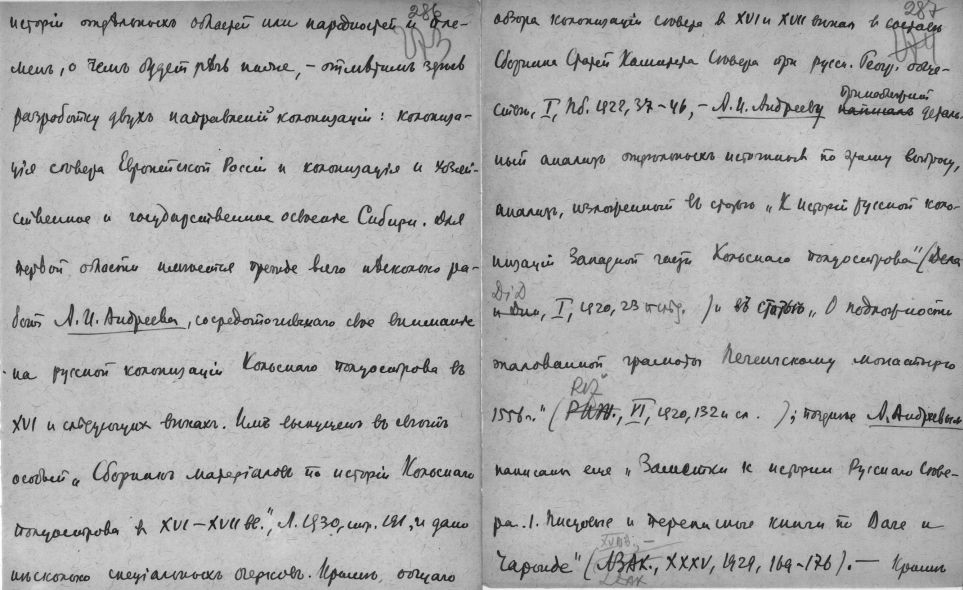 286
исторіи отдѣльныхъ областей или народностей и пле-
менъ, о чемъ будетъ рѣчь ниже, – отмѣтимъ здѣсь
разработку двухъ направленій колонизаціи: колониза-
ція сѣвера Европейской Россіи и колонизація и хозяй-
ственное и государственное освоеніе Сибири. Для
первой области имѣется прежде всего нѣсколько ра-
ботъ А. И. Андреева, сосредоточившаго свое вниманіе
на русской колонизаціи Кольскаго полуострова въ
XVI и слѣдующихъ вѣкахъ. Имъ выпущенъ въ свѣтъ
особый „Сборникъ матеріаловъ по исторіи Кольскаго
полуострова в XVI–XVII вв.", Л. 1930, стр. 191, и дано
нѣсколько спеціальныхъ очерковъ. Кромѣ, общаго
287
обзора колонизаціи сѣвера в XVI и XVII вѣкахъ в составѣ
Сборника Статей Комитета Сѣвера при русск. Геогр. обще-
ствѣ, I, Пб. 1922, 37-46, – А. И. Андрееву принадлежитъ
написалъ деталь-
ный анализъ отдѣльныхъ источниковъ по этому вопросу,
анализъ, изложенный въ статьѣ „К исторіи русской коло-
низаціи Западной части Кольскаго полуострова" (Дѣла
DiD
и Дни, I, 1920, 23 и слѣд. ) и въ статьѣ „О подложности
жалованной грамоты Печенгскому монастырю
RIŽ
1556 г." (РИЖ., VI, 1920, 132 и сл. ); позднѣе А. Андреевым
написаны еще „Заметки к истории Русскаго Сѣве-
ра. 1. Писцовые и переписные книги по Ваге и
XVII в. –
Чаронде" (ЛЗАК., XXXV, 1929, 169-176). – Кромѣ
LZAK